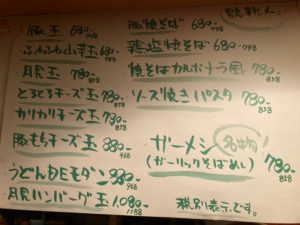 豚玉 680- 748
ふわふわ山芋玉 680- 748
月見玉 780- 858
とろとろチーズ玉 780- 858
カリカリチーズ玉 730-
豚もちチーズ玉 880- 968
うどんDEモダン 880- 968
月見ハンバーグ玉 1,080- 1188
豚焼そば 680- 748
鶏塩焼そば 680- 748
焼そばカルボナーラ風 780- 858
ソース焼きパスタ 780- 858
ガーメシ 名物! 780- 858
(ガーリックそばめし)
税別表示です。